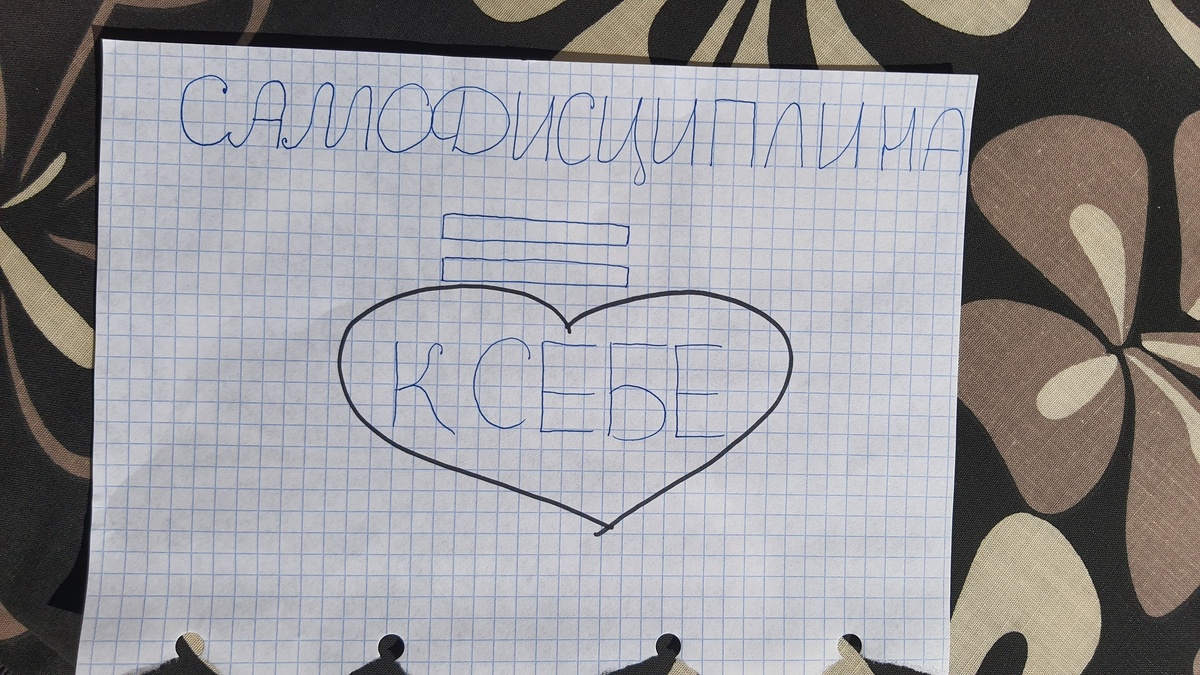 САМОДИСЦИПЛИНА
=
К СЕБЕ